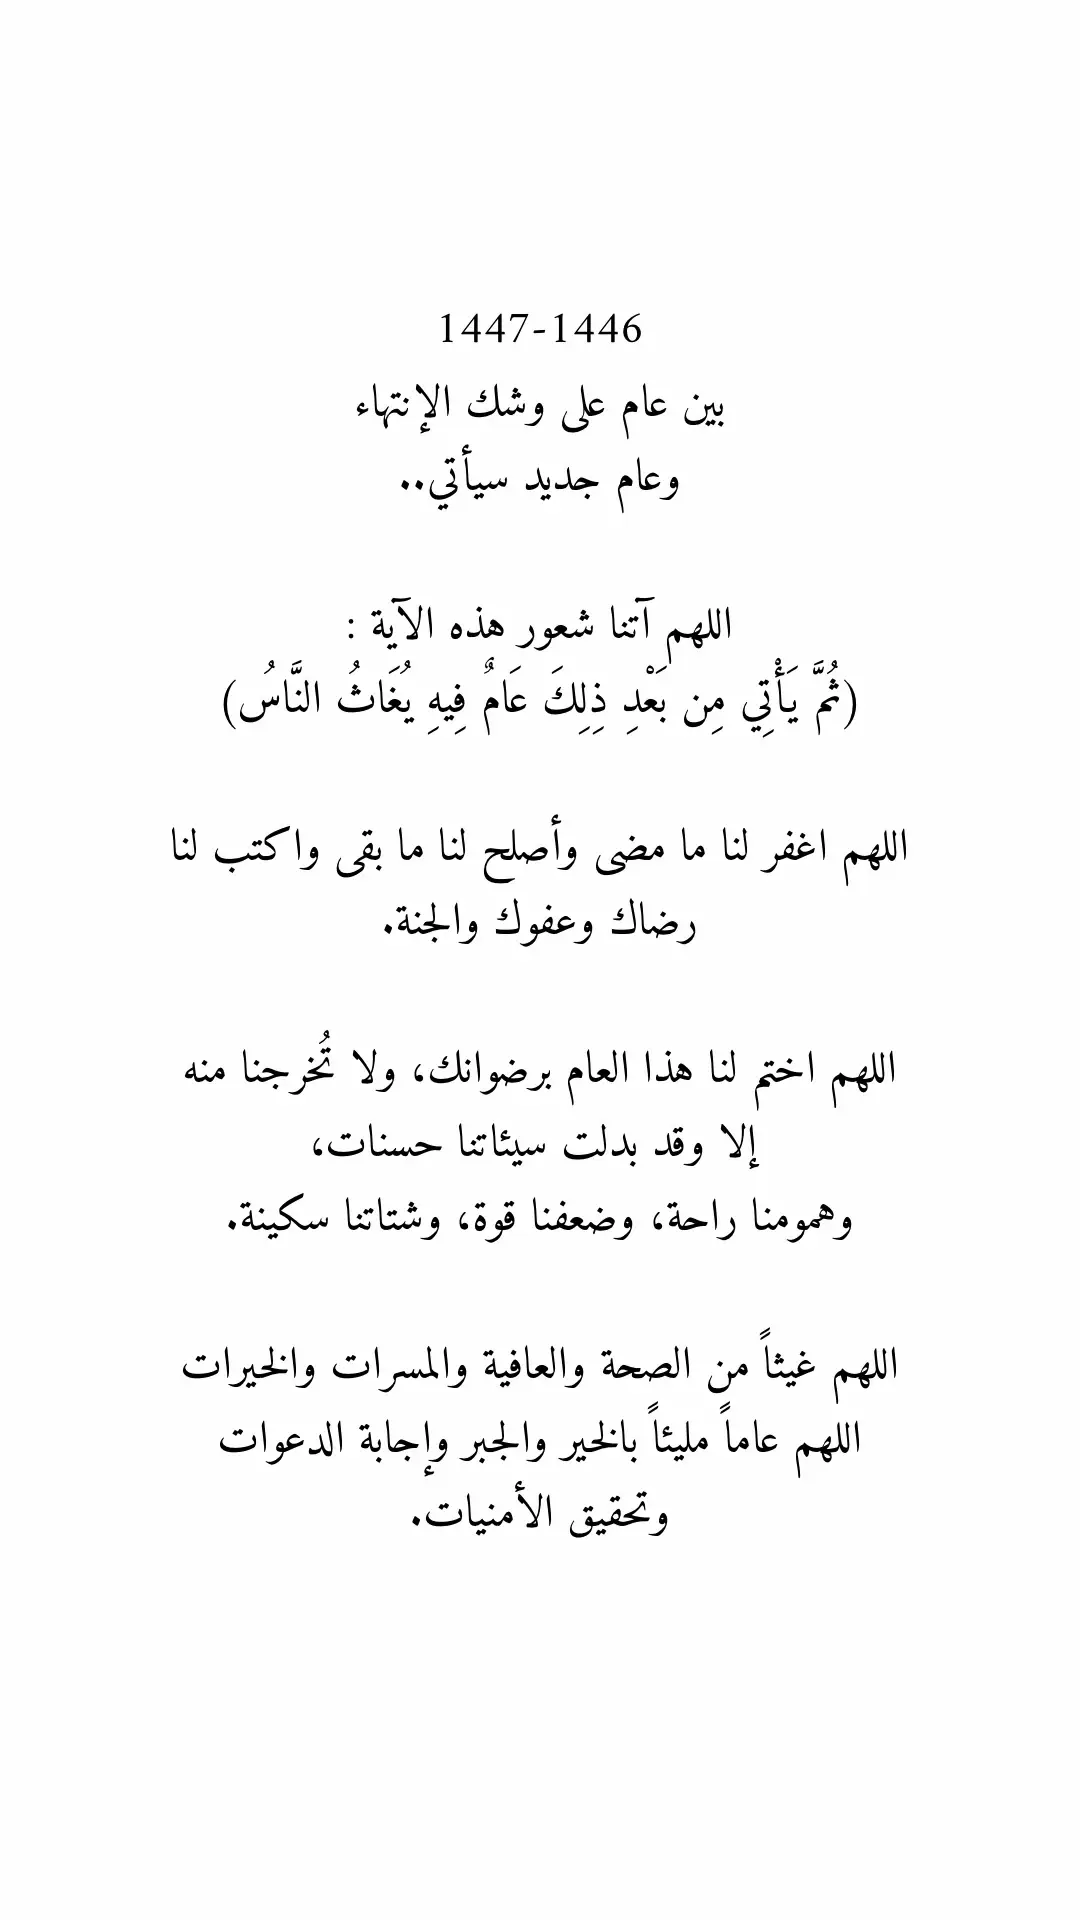 1447-1446
بين عام على وشك الإنتهاء
وعام جديد سيأتي..
اللهم آتنا شعور هذه الآية :
(ثُمَّ يَأْتِي مِن بَعْدِ ذَِلِكَ عَامٌ فِيهِ يُغَاثُ النَّاسُ)
اللهم اغفر لنا ما مضى وأصلح لنا ما بقى واكتب لنا
رضاك وعفوك والجنة.
اللهم اختم لنا هذا العام برضوانك، ولا تُخرجنا منه
إلا وقد بدلت سيئاتنا حسنات،
وهمومنا راحة، وضعفنا قوة، وشتاتنا سكينة.
اللهم غيثاً من الصحة والعافية والمسرات والخيرات
اللهم عاماً مليئاً بالخير والجبر وإجابة الدعوات
وتحقيق الأمنيات.